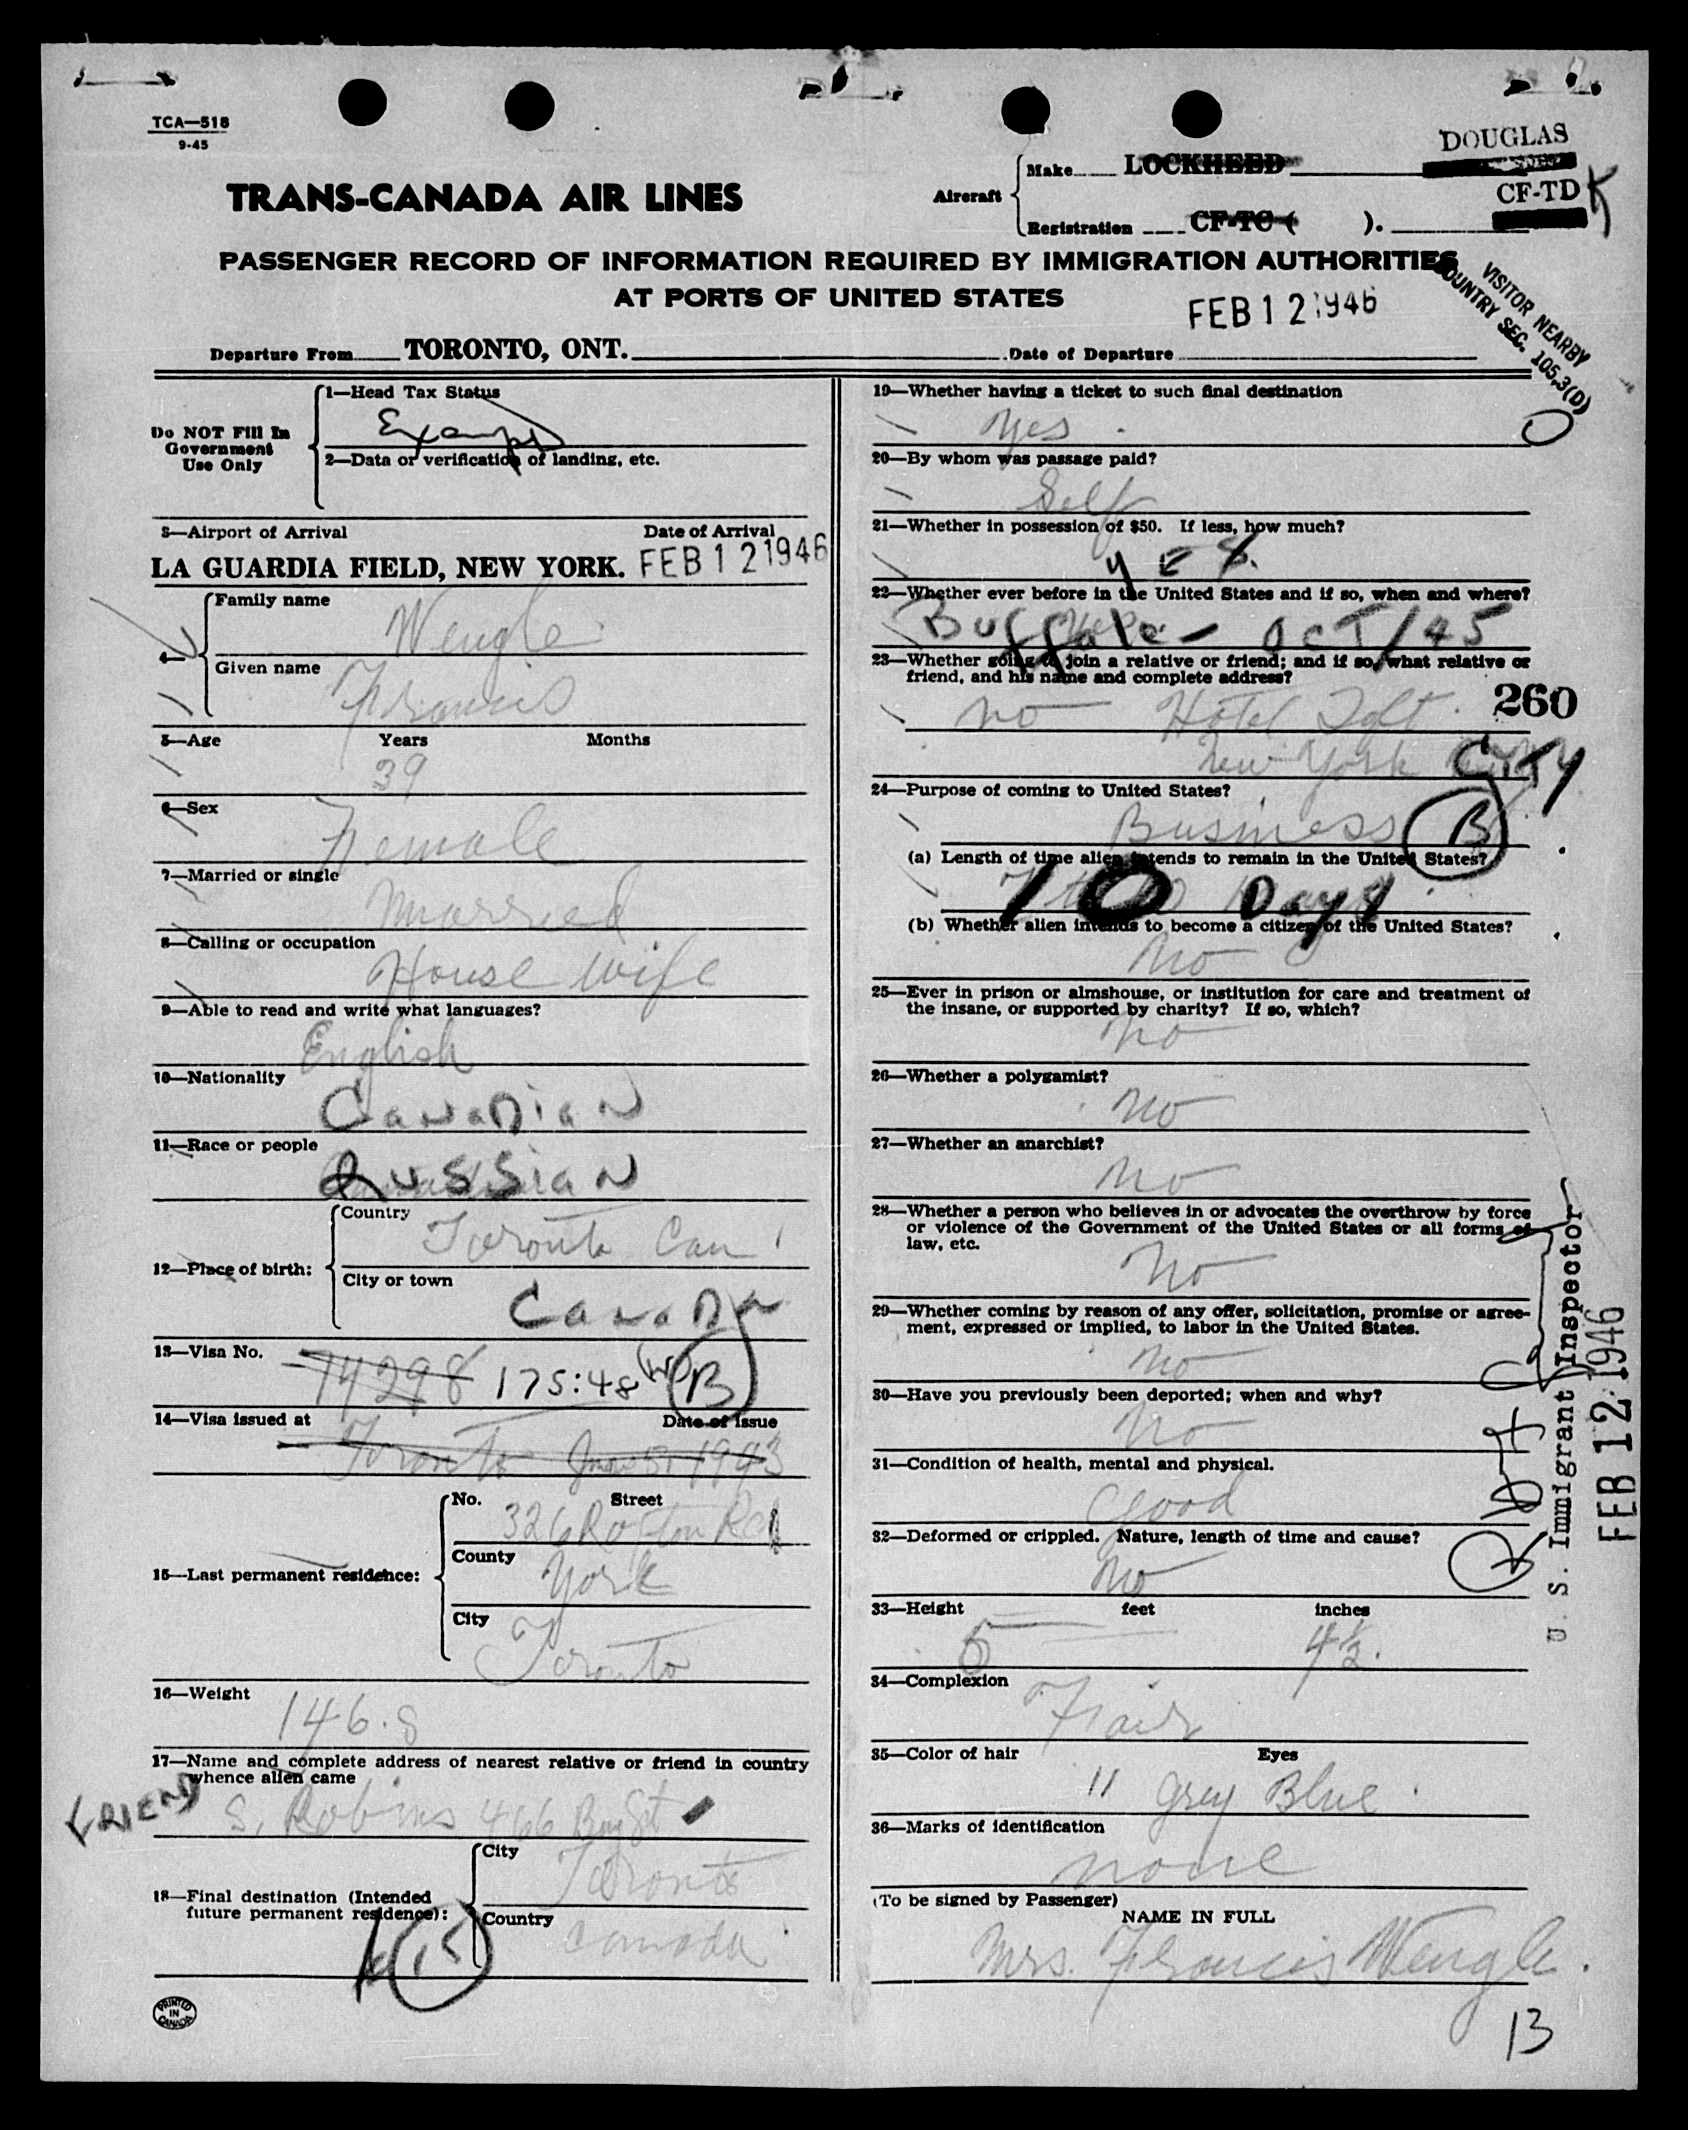 TCA—518
9-45
DOUGLAS
Aircraft
Make LOCKHEED
CF-TD K
Registration CF-TC ( ).
TRANS-CANADA AIR LINES
PASSENGER RECORD OF INFORMATION REQUIRED BY IMMIGRATION AUTHORITIES
AT PORTS OF UNITED STATES
FEB 12 1946
VISITOR NEARBY
COUNTRY SEC. 105,3(D)
Departure From TORONTO, ONT. Date of Departure
Do NOT Fill In
Government
Use Only
1—Head Tax Status
Exempt
2—Data or verification of landing, etc.
3—Airport of Arrival Date of Arrival
LA GUARDIA FIELD, NEW YORK. FEB 12 1946
4—
Family name
Wengle
Given name
Francis
5—Age Years Months
39
6—Sex
Female
7—Married or single
Married
8—Calling or occupation
House wife
9—Able to read and write what languages?
English
10—Nationality
Canadian
11—Race or people
Russian
12—Place of birth:
Country
Toronto Can
City or town
Canada
13—Visa No.
14298 175:48 B
14—Visa issued at Date of issue
Toronto 1943
15—Last permanent residence:
No. Street
326 Rd
County
York
City
Toronto
16—Weight
146.8
17—Name and complete address of nearest relative or friend in country
whence alien came
FRIEND S. Robins 466 Bay St
18—Final destination (Intended
future permanent residence):
City
Toronto
Country
Canada
15
PRINTED
IN
CANADA
19—Whether having a ticket to such final destination
Yes
20—By whom was passage paid?
Self
21—Whether in possession of $50. If less, how much?
yes.
22—Whether ever before in the United States and if so, when and where?
Buffalo - OCT/45
23—Whether going to join a relative or friend; and if so, what relative or
friend, and his name and complete address?
260
no Hotel Taft
New York CITY
24—Purpose of coming to United States?
Business B
(a) Length of time alien intends to remain in the United States?
10 Days
(b) Whether alien intends to become a citizen of the United States?
No
25—Ever in prison or almshouse, or institution for care and treatment of
the insane, or supported by charity? If so, which?
No
26—Whether a polygamist?
No
27—Whether an anarchist?
No
28—Whether a person who believes in or advocates the overthrow by force
or violence of the Government of the United States or all forms of
law, etc.
No
29—Whether coming by reason of any offer, solicitation, promise or agree-
ment, expressed or implied, to labor in the United States.
No
30—Have you previously been deported; when and why?
No
31—Condition of health, mental and physical.
Good
32—Deformed or crippled. Nature, length of time and cause?
No
33—Height feet inches
5 4½.
34—Complexion
Fair
35—Color of hair Eyes
" Grey Blue
36—Marks of identification
none
(To be signed by Passenger)
NAME IN FULL
Mrs. Francis Wengle.
13
U. S. Immigrant Inspector
FEB 12 1946